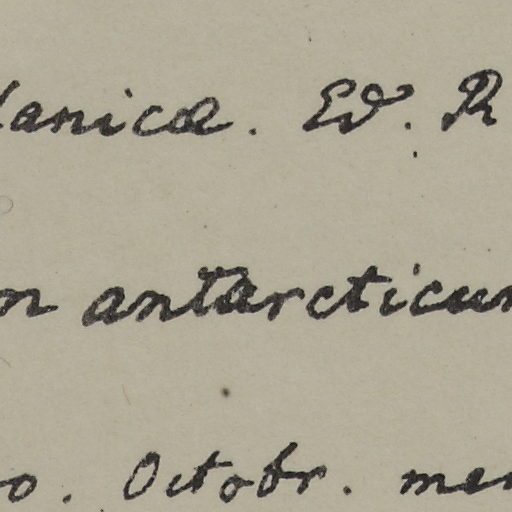 lanicæ. Ed. R
n antarcticum
o. Octobr. men